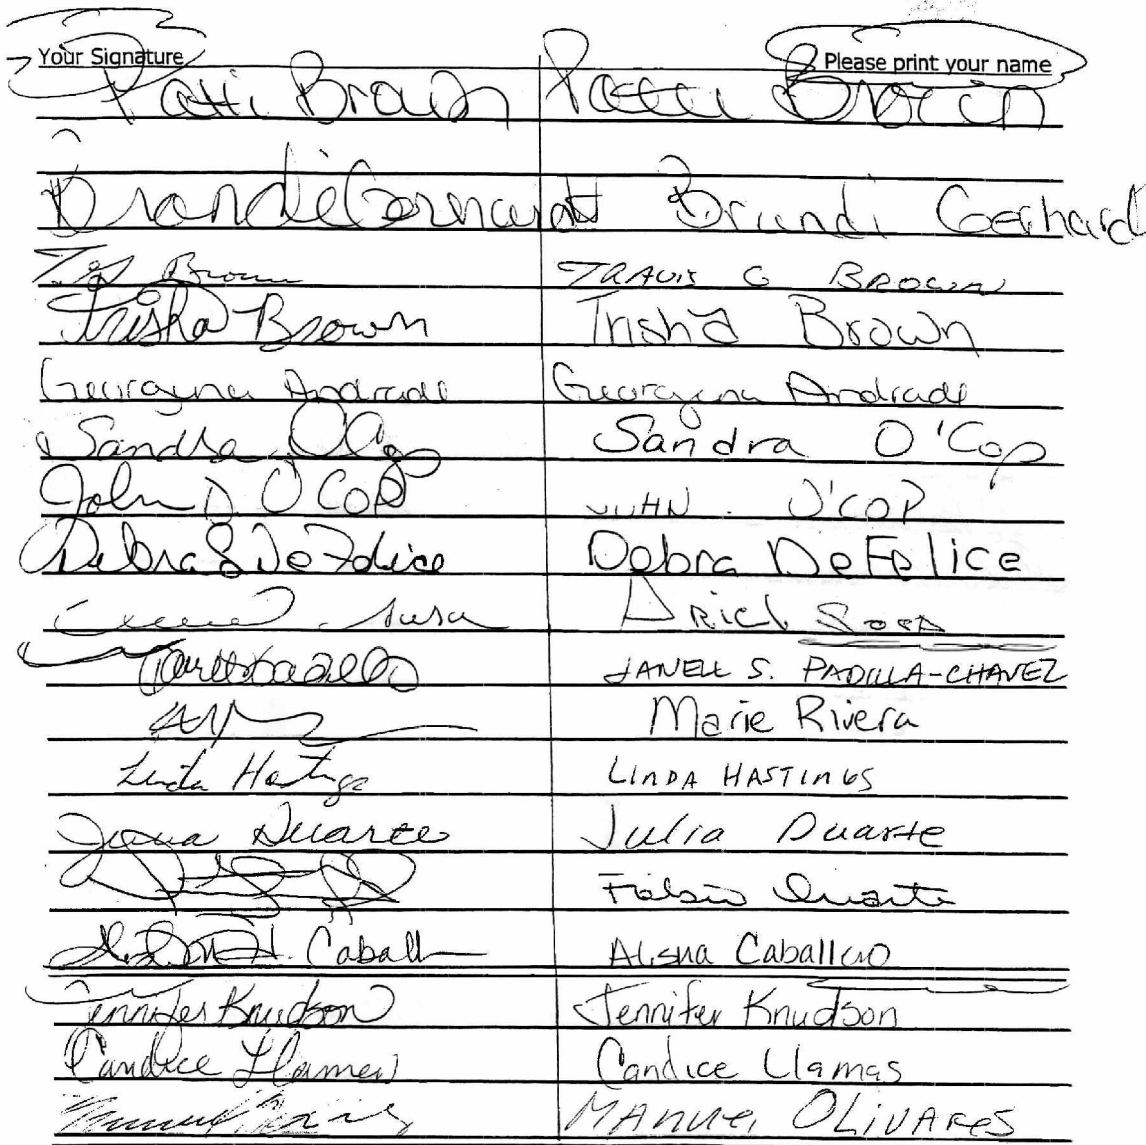 Your Signature Please print your name
Patti Brown Patti Brown
Brandi Gerhardt Brandi Gerhardt
Brown TRAVIS G BROWN
Trisha Brown Trisha Brown
Georgyna Andrade Georgyna Andrade
Sandra O'Cop Sandra O'Cop
John D O'COP JOHN . O'COP
Debra S DeFelice Debra DeFelice
Sosa Ariel Sosa
JANELL S. PADILLA-CHAVEZ
Marie Rivera
Linda Hastings LINDA HASTINGS
Julia Duarte Julia Duarte
Fabio Duarte
H. Caball Alisha Caballero
Jennifer Knudson Jennifer Knudson
Candice Llamas Candice Llamas
MANUEL OLIVARES